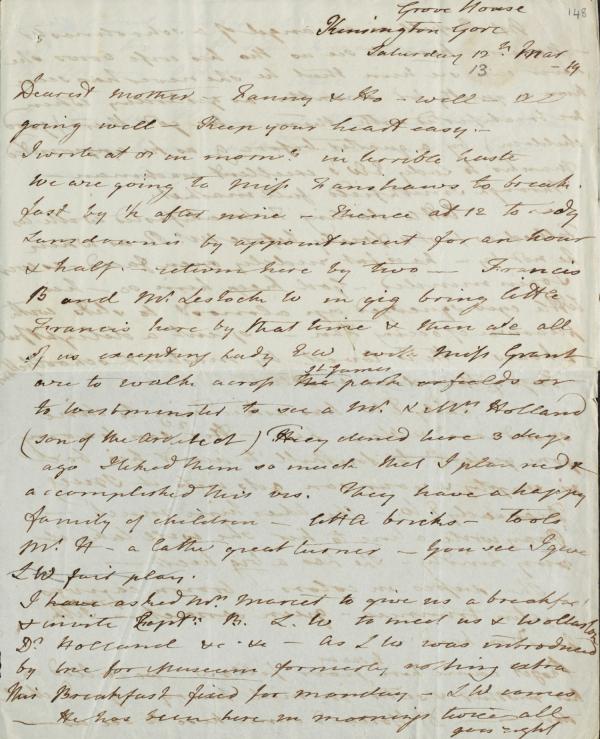 148
Grove House
Kensington Gore
Saturday 12th Mar
13 - 19
Dearest Mother - Fanny & Ho - well - all
going well - Keep your heart easy. -
I wrote at 8 in morng in terrible haste
we are going to Miss Fanshaws to break
fast by 1/2 after nine - thence at 12 to Lady
Lansdownes by appointment for an hour
& half - return here by two - Francis
B and Mr Lestock W in gig bring little
Francis here by that time & then all
of us excepting Lady EW with Miss Grant
are to walk across the St James park or fields or
to Westminster to see a Mr & Mrs Holland
(son of the Architect) They dined here 3 days
ago I liked them so much that I planned &
accomplished this vis. They have a happy
family of children - little bricks - tools
Mr H - a lathe great turner - You see I give
LW fair play.
I have asked Mrs Marcet to give us a breakfast
& invite Captn B. L W to meet us & Wollaston
Dr Holland &c &c - as L W was introduced
by me for Museum formerly nothing extra
This Breakfast fixed for monday - L W comes
- He has been here in mornings twice all
goes right